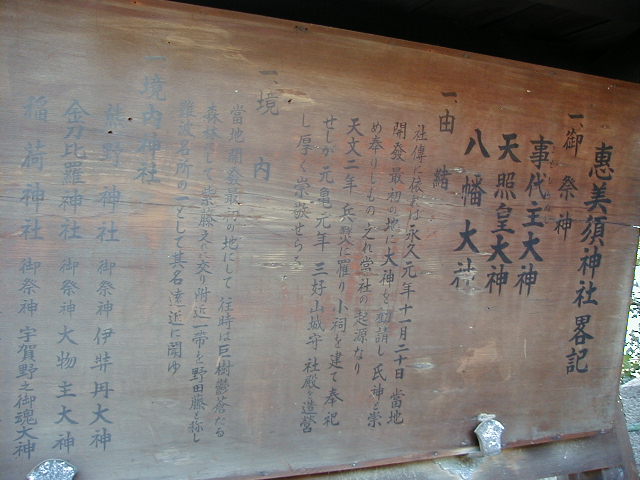 惠美須神社畧記
一、御祭神
事代主大神
天照皇大神
八幡大神
一、由緒
社傳に依れば永久元年十一月二十日 當地
開發最初の地に大神を勧請し氏神と崇
め奉りしもの之れ當社の起源なり
天文二年 兵燹に罹り小祠を建て奉祀
せしが元亀元年 三好山城守 社殿を造営
し厚く崇敬せらる
一、境内
當地開發最初の地にして往時は巨樹鬱蒼たる
森林にして紫藤又は交り附近一帯を野田藤と称し
難波名所の一として其名遠近に聞ゆ
一、境内神社
熊野神社 御祭神 伊弉丹大神
金刀比羅神社 御祭神 大物主大神
稲荷神社 御祭神 宇賀野之御魂大神